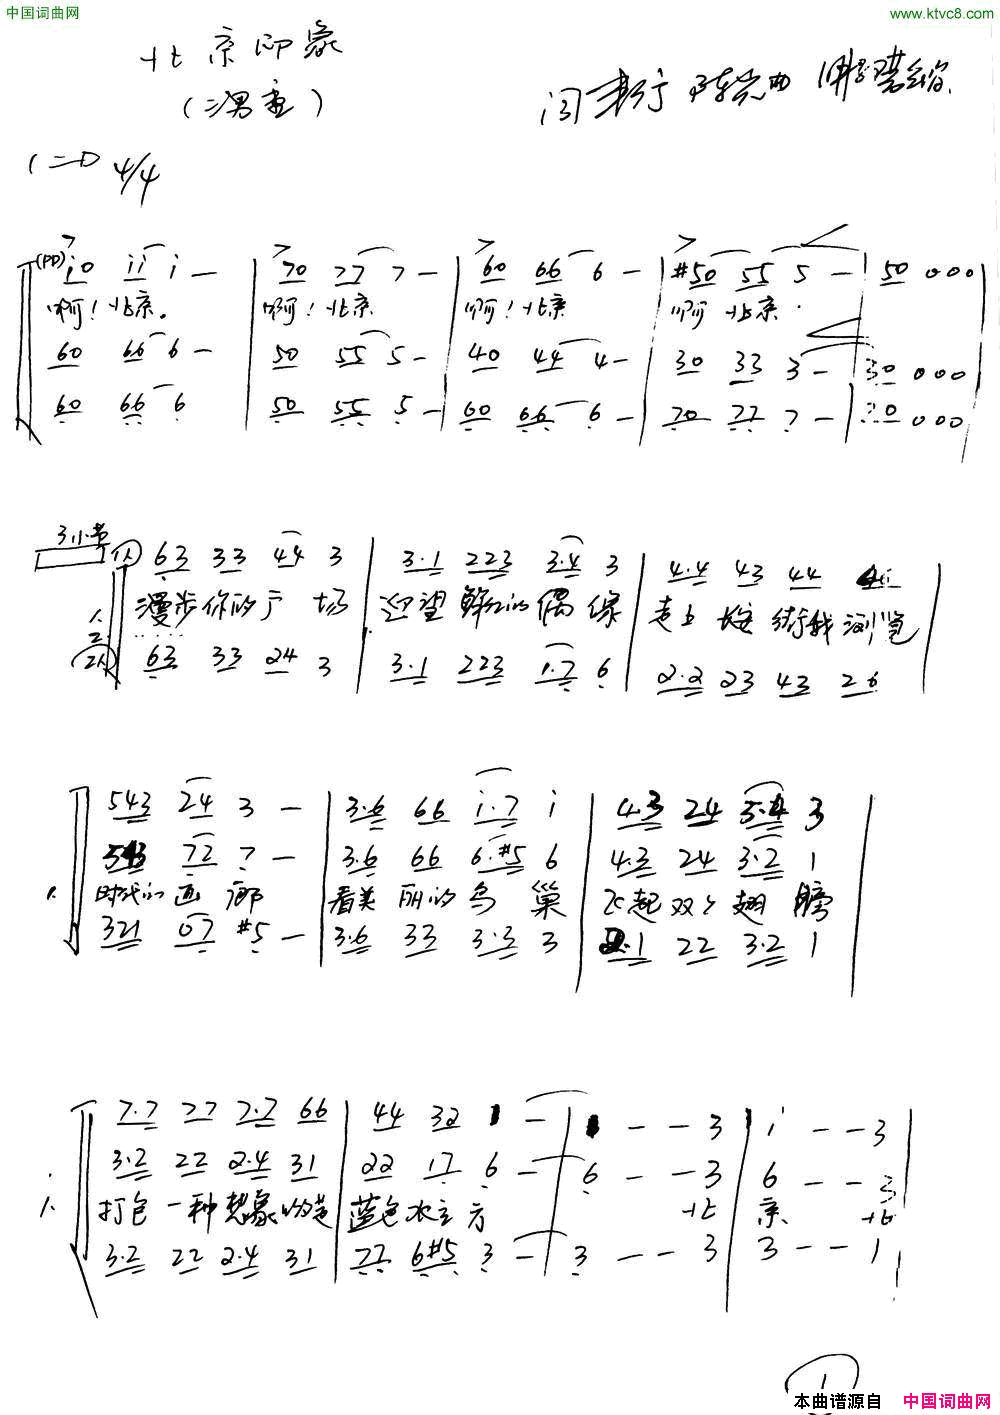 中国词曲网 www.ktvc8.com
北京印象
(二男重)
1=D 4/4
i0 ii i - | 70 77 7 - | 60 66 6 - | #50 55 5 - | 50 0 0 0
啊!北京。 啊!北京 啊!北京 啊 北京
60 66 6 - | 50 55 5 - | 40 44 4 - | 30 33 3 - | 30 0 0 0
60 66 6 | 50 55 5 - | 60 66 6 - | 70 77 7 - | 70 0 0 0
3小节
63 33 44 3 | 3·1 223 3·4 3 | 4·4 43 44
漫步你的广场 迎望鲜红的偶像 走上长安街我浏览
63 33 24 3 | 3·1 223 1·7 6 | 2·2 23 43 26
543 24 3 - | 3·6 66 i·7 i | 4·3 24 3·4 3
543 72 7 - | 3·6 66 6·#5 6 | 4·3 24 3·2 1
时代的画廊 看美丽的鸟巢 飞起双双翅膀
321 07 #5 - | 3·6 33 3·3 3 | 2·1 22 3·2 1
7·7 77 7·7 66 | 44 32 1 - | 1 - - 3 | i - - 3
3·2 22 2·4 31 | 22 17 6 - | 6 - - 3 | 6 - - 3
打包一种想象的是 蓝色水立方 北 京 北
3·2 22 2·4 31 | 77 6#5 3 - | 3 - - 3 | 3 - - 1
1
本曲谱源自 中国词曲网